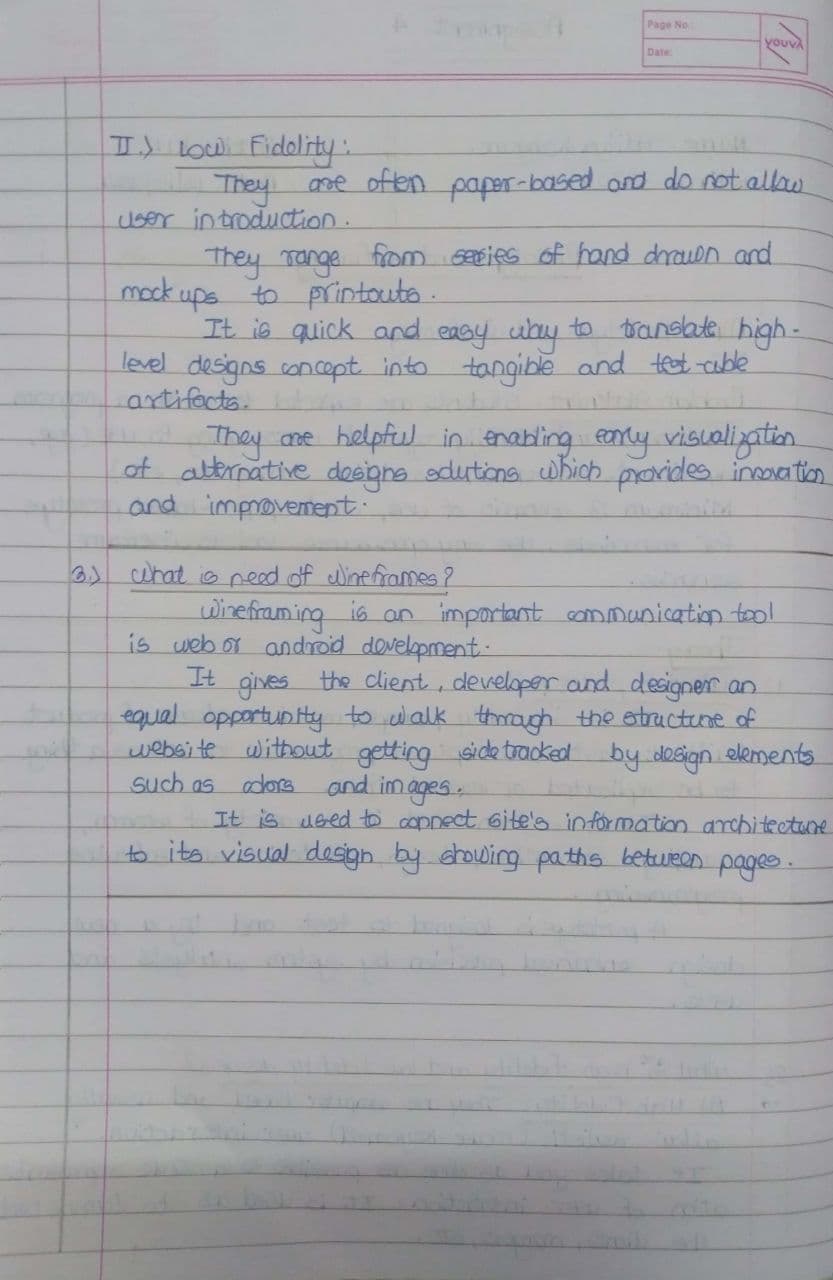 Page No.:
Date:
YOUVA
II.) Low Fidelity:
They are often paper-based and do not allow
user introduction.
They range from series of hand drawn and
mock ups to printouts.
It is quick and easy way to translate high-
level designs concept into tangible and test-able
artifacts.
They are helpful in enabling early visualization
of alternative designs solutions which provides innovation
and improvement.
3.) What is need of Wireframes?
Wireframing is an important communication tool
is web or android development.
It gives the client, developer and designer an
equal opportunity to walk through the structure of
website without getting sidetracked by design elements
such as colors and images.
It is used to connect site's information architecture
to its visual design by showing paths between pages.